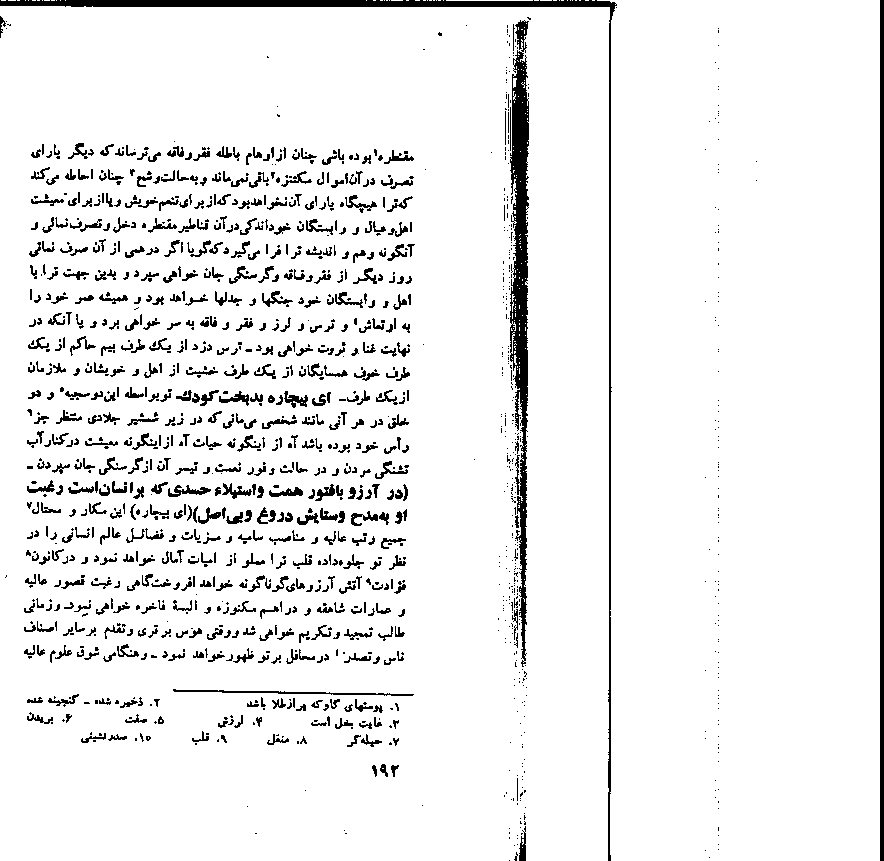 مقنطره۱ بوده باشی چنان از اوهام باطله فقر و فاقه می‌ترساند که دیگر یارای
تصرف در آن اموال مکتنزه۲ باقی نمی‌ماند و به حالت و شح۳ چنان احاطه می‌کند
که ترا هیچگاه یارای آن نخواهد بود که از برای تنعم خویش و یا از برای معیشت
اهل و عیال و وابستگان خود اندکی در آن قناطیر مقنطره دخل و تصرف نمائی و
آنگونه وهم و اندیشه ترا فرا می‌گیرد که گویا اگر درهمی از آن صرف نمائی
روز دیگر از فقر و فاقه و گرسنگی جان خواهی سپرد و بدین جهت ترا با
اهل و وابستگان خود جنگها و جدلها خواهد بود و همیشه عمر خود را
به ارتعاش۴ و ترس و لرز و فقر و فاقه به سر خواهی برد و با آنکه در
نهایت غنا و ثروت خواهی بود ـ ترس دزد از یک طرف بیم حاکم از یک
طرف خوف همسایگان از یک طرف خشیت از اهل و خویشان و ملازمان
از یک طرف ـ ای بیچاره بدبخت کودک. تو بواسطه این دو سجیه۵ و دو
خلق در هر آنی مانند شخصی می‌مانی که در زیر شمشیر جلادی منتظر جز۶
رأس خود بوده باشد آه از اینگونه حیات آه از اینگونه معیشت در کنار آب
تشنگی مردن و در حالت وفور نعمت و تیسر آن از گرسنگی جان سپردن ـ
(در آرزو بافتور همت واستیلاء حسدی که بر انسان است رغبت
او به مدح و ستایش دروغ و بی اصل) (ای بیچاره) این مکار و محتال۷
جمیع رتب عالیه و مناصب سامیه و مزیات و فضائل عالم انسانی را در
نظر تو جلوه داده قلب ترا مملو از امیات آمال خواهد نمود و در کانون۸
فؤادت۹ آتش آرزوهای گوناگونه خواهد افروخت گاهی رغبت قصور عالیه
و عمارات شاهقه و دراهم مکنوزه و البسهٔ فاخره خواهی نمود. و زمانی
طالب تمجید و تکریم خواهی شد و وقتی هوس برتری و تقدم بر سایر اصناف
ناس و تصدر۱۰ در محافل بر تو ظهور خواهد نمود ـ و هنگامی شوق علوم عالیه
۱. پوستهای گاو که پر از طلا باشد ۲. ذخیره شده ـ گنجینه شده
۳. غایت بخل است ۴. لرزش ۵. صفت ۶. بریدن
۷. حیله‌گر ۸. منقل ۹. قلب ۱۰. صدرنشینی
۱۹۲